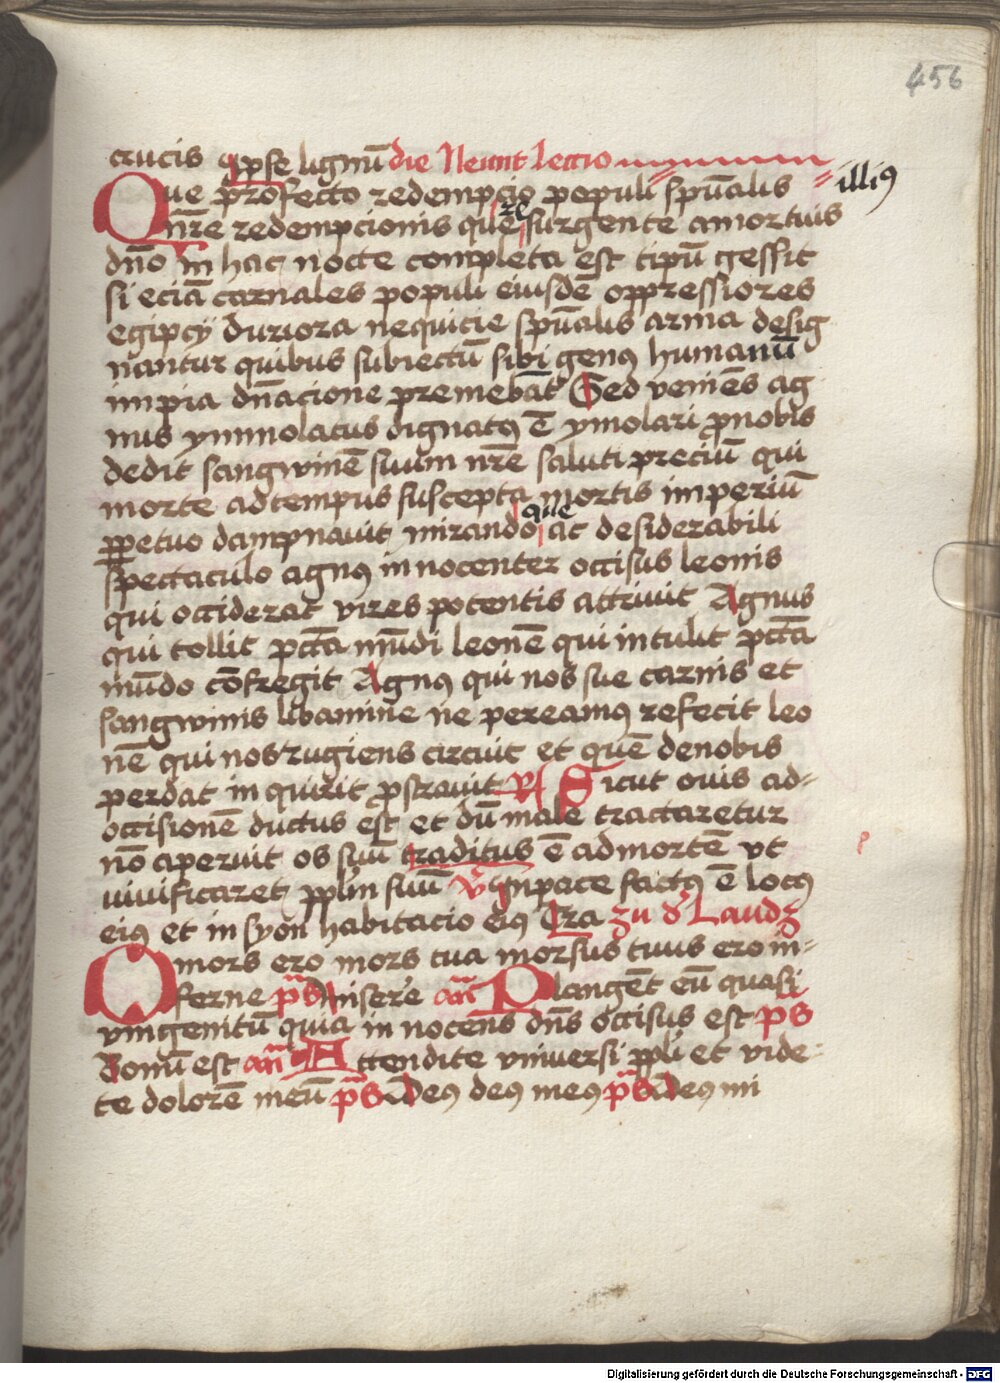 456
crucis ipse lignū die Neunt Leccio
Que profecto redempcio populi spūalis illiꝰ
nr̄e redempcionis que re surgente amortuis
dn̄o in hac nocte completa est tipū gessit
si eciā carnales populi eiusdē oppressiores
egipcij duriora nequicie spūalis arma desig
nantur quibus subiectū sibi genꝰ humanū
impia dn̄acione premebāt Sed veniēs ag
nus ymmolatus dignatꝰ ē ymolari pro nobis
dedit sangwinē suum nr̄e saluti preciū qui
morte adtempus suscepta mortis imperiū
ꝑpetuo dampnauit mirando que ac desiderabili
spectaculo agnꝰ innocenter occisus leonis
qui occiderat vires potentis attriuit Agnus
qui tollit pctā mūdi leonē qui intulit pctā
mūdo cōfregit Agnꝰ qui nos sue carnis et
sangwinis libamine ne pereamꝰ refecit leo
nē qui nos rugiens circuit et quē denobis
perdat inquirit prostrauit R Sicut ouis ad-
occisionē ductus est et dū male tractaretur
nō aperuit os suū traditus ē admortē vt
viuificaret pplm̄ suū V Inpace factꝰ ē locꝰ
eiꝰ et in syon habitacio eiꝰ Cra zu d' Laudz
O mors ero mors tua morsus tuus ero in-
ferne ps Misere an̄ Plangēt eū quasi
vnigenitū quia innocens dn̄s occisus est ps
Bonū est an̄ Attendite vniuersi ppl̄i et vide
te dolorē meū ps Deꝰ deꝰ meꝰ ps Deꝰ mi
Digitalisierung gefördert durch die Deutsche Forschungsgemeinschaft - DFG